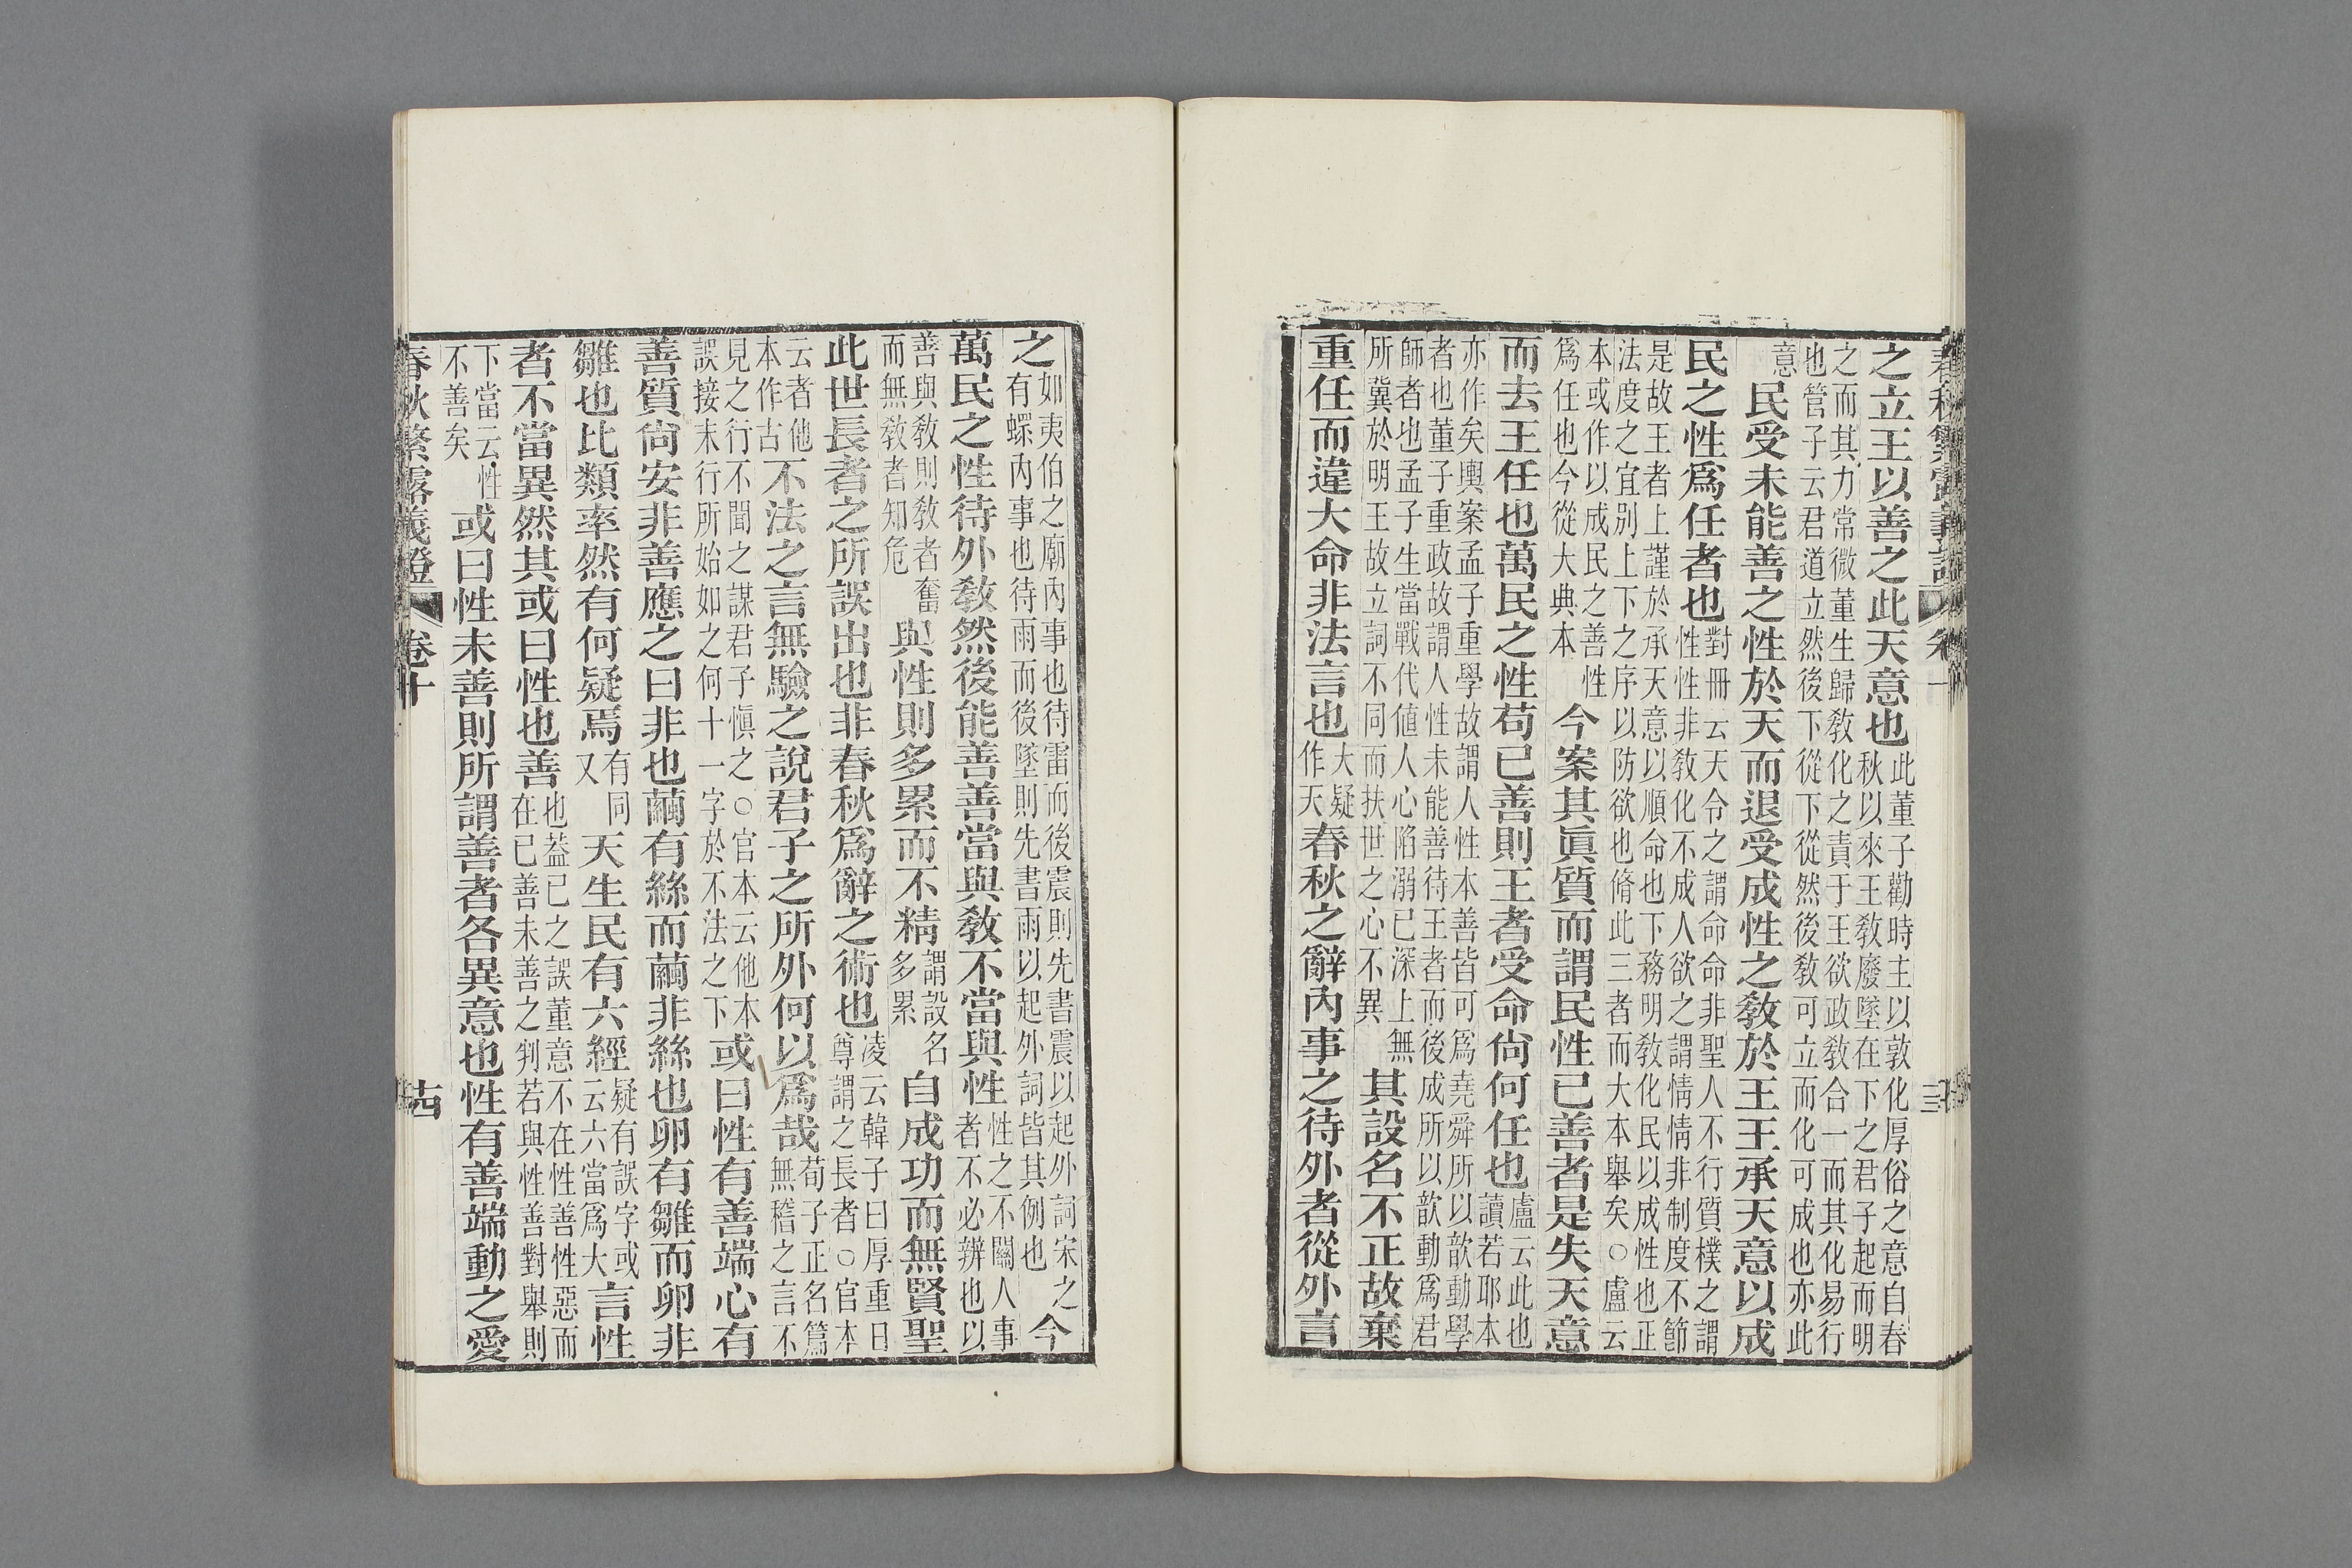 之立王以善之此天意也此董子勸時主以敦化厚俗之意自春
秋以來王敎廢墜在下之君子起而明
之而其力常微董生歸敎化之責于王欲政敎合一而其化易行
也管子云君道立然後下從下從然後敎可立而化可成也亦此
意民受未能善之性於天而退受成性之敎於王王承天意以成
民之性爲任者也對冊云天令之謂命命非聖人不行質樸之謂
性性非敎化不成人欲之謂情情非制度不節
是故王者上謹於承天意以順命也下務明敎化民以成性也正
法度之宜别上下之序以防欲也脩此三者而大本舉矣○盧云
本或作以成民之善性
爲任也今從大典本今案其眞質而謂民性已善者是失天意
而去王任也萬民之性苟已善則王者受命尙何任也盧云此也
讀若耶本
亦作矣輿案孟子重學故謂人性本善皆可爲堯舜所以歆動學
者也董子重政故謂人性未能善待王者而後成所以歆動爲君
師者也孟子生當戰代値人心陷溺已深上無
所冀於明王故立詞不同而扶世之心不異其設名不正故棄
重任而違大命非法言也大疑
作天春秋之辭內事之待外者從外言
之如夷伯之廟內事也待雷而後震則先書震以起外詞宋之
有蠌內事也待雨而後墜則先書雨以起外詞皆其例也今
萬民之性待外敎然後能善善當與敎不當與性性之不關人事
者不必辨也以
善與敎則敎者奮
而無敎者知危與性則多累而不精謂設名
多累自成功而無賢聖
此世長者之所誤出也非春秋爲辭之術也凌云韓子曰厚重曰
尊謂之長者○官本
云者他
本作古不法之言無驗之說君子之所外何以爲哉荀子正名篇
無稽之言不
見之行不聞之謀君子愼之○官本云他本
誤接末行所始如之何十一字於不法之下或曰性有善端心有
善質尙安非善應之曰非也繭有絲而繭非絲也卵有雛而卵非
雛也比類率然有何疑焉有同
又天生民有六經疑有誤字或
云六當爲大言性
者不當異然其或曰性也善也葢已之誤董意不在性善性惡而
在已善未善之判若與性善對舉則
下當云性
不善矣或曰性未善則所謂善者各異意也性有善端動之愛
春秋繁露義證 卷十 十四